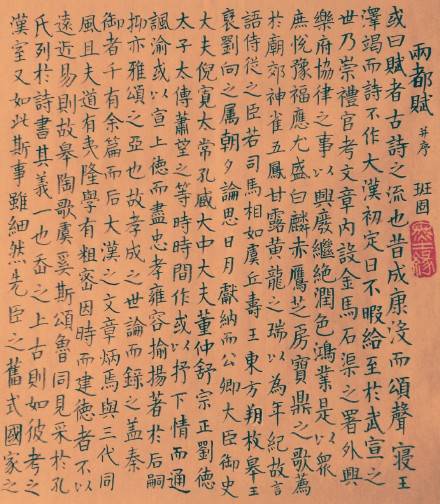 兩都賦 并序 班固
或曰賦者古詩之流也昔成康沒而頌聲寢王
澤竭而詩不作大漢初定日不暇給至於武宣之
世乃崇禮官考文章內設金馬石渠之署外興
樂府協律之事以興廢繼絕潤色鴻業是以衆
庶悅豫福應尤盛白麟赤鴈芝房寶鼎之歌薦
於廟郊神雀五鳳甘露黃龍之瑞以為年紀故言
語侍從之臣若司馬相如虞丘壽王東方朔枚皋王
褒劉向之属朝夕論思日月獻納而公卿大臣御史
大夫倪寬太常孔臧大中大夫董仲舒宗正劉德
太子太傅蕭望之等時時間作或以抒下情而通
諷諭或以宣上德而盡忠孝雍容揄揚著於后嗣
抑亦雅頌之亞也故孝成之世論而錄之蓋奏
御者千有余篇而后大漢之文章炳焉與三代同
風且夫道有夷隆學有粗密因時而建德者不以
遠近易則故皋陶歌虞奚斯頌魯同見采於孔
氏列於詩書其義一也之上古則如彼考之
漢室又如此斯事雖細然先臣之舊式國家之